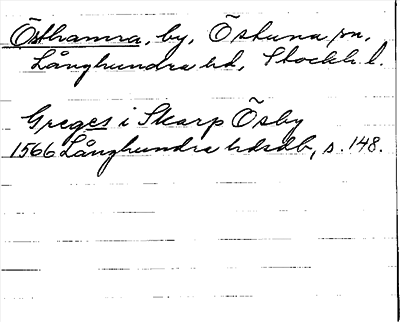 Östhamra, by, Östuna sn,
Långhundra hd, Stockh. l.
Greges i Skarp Ösby
1566 Långhundra hdsdb, s. 148.